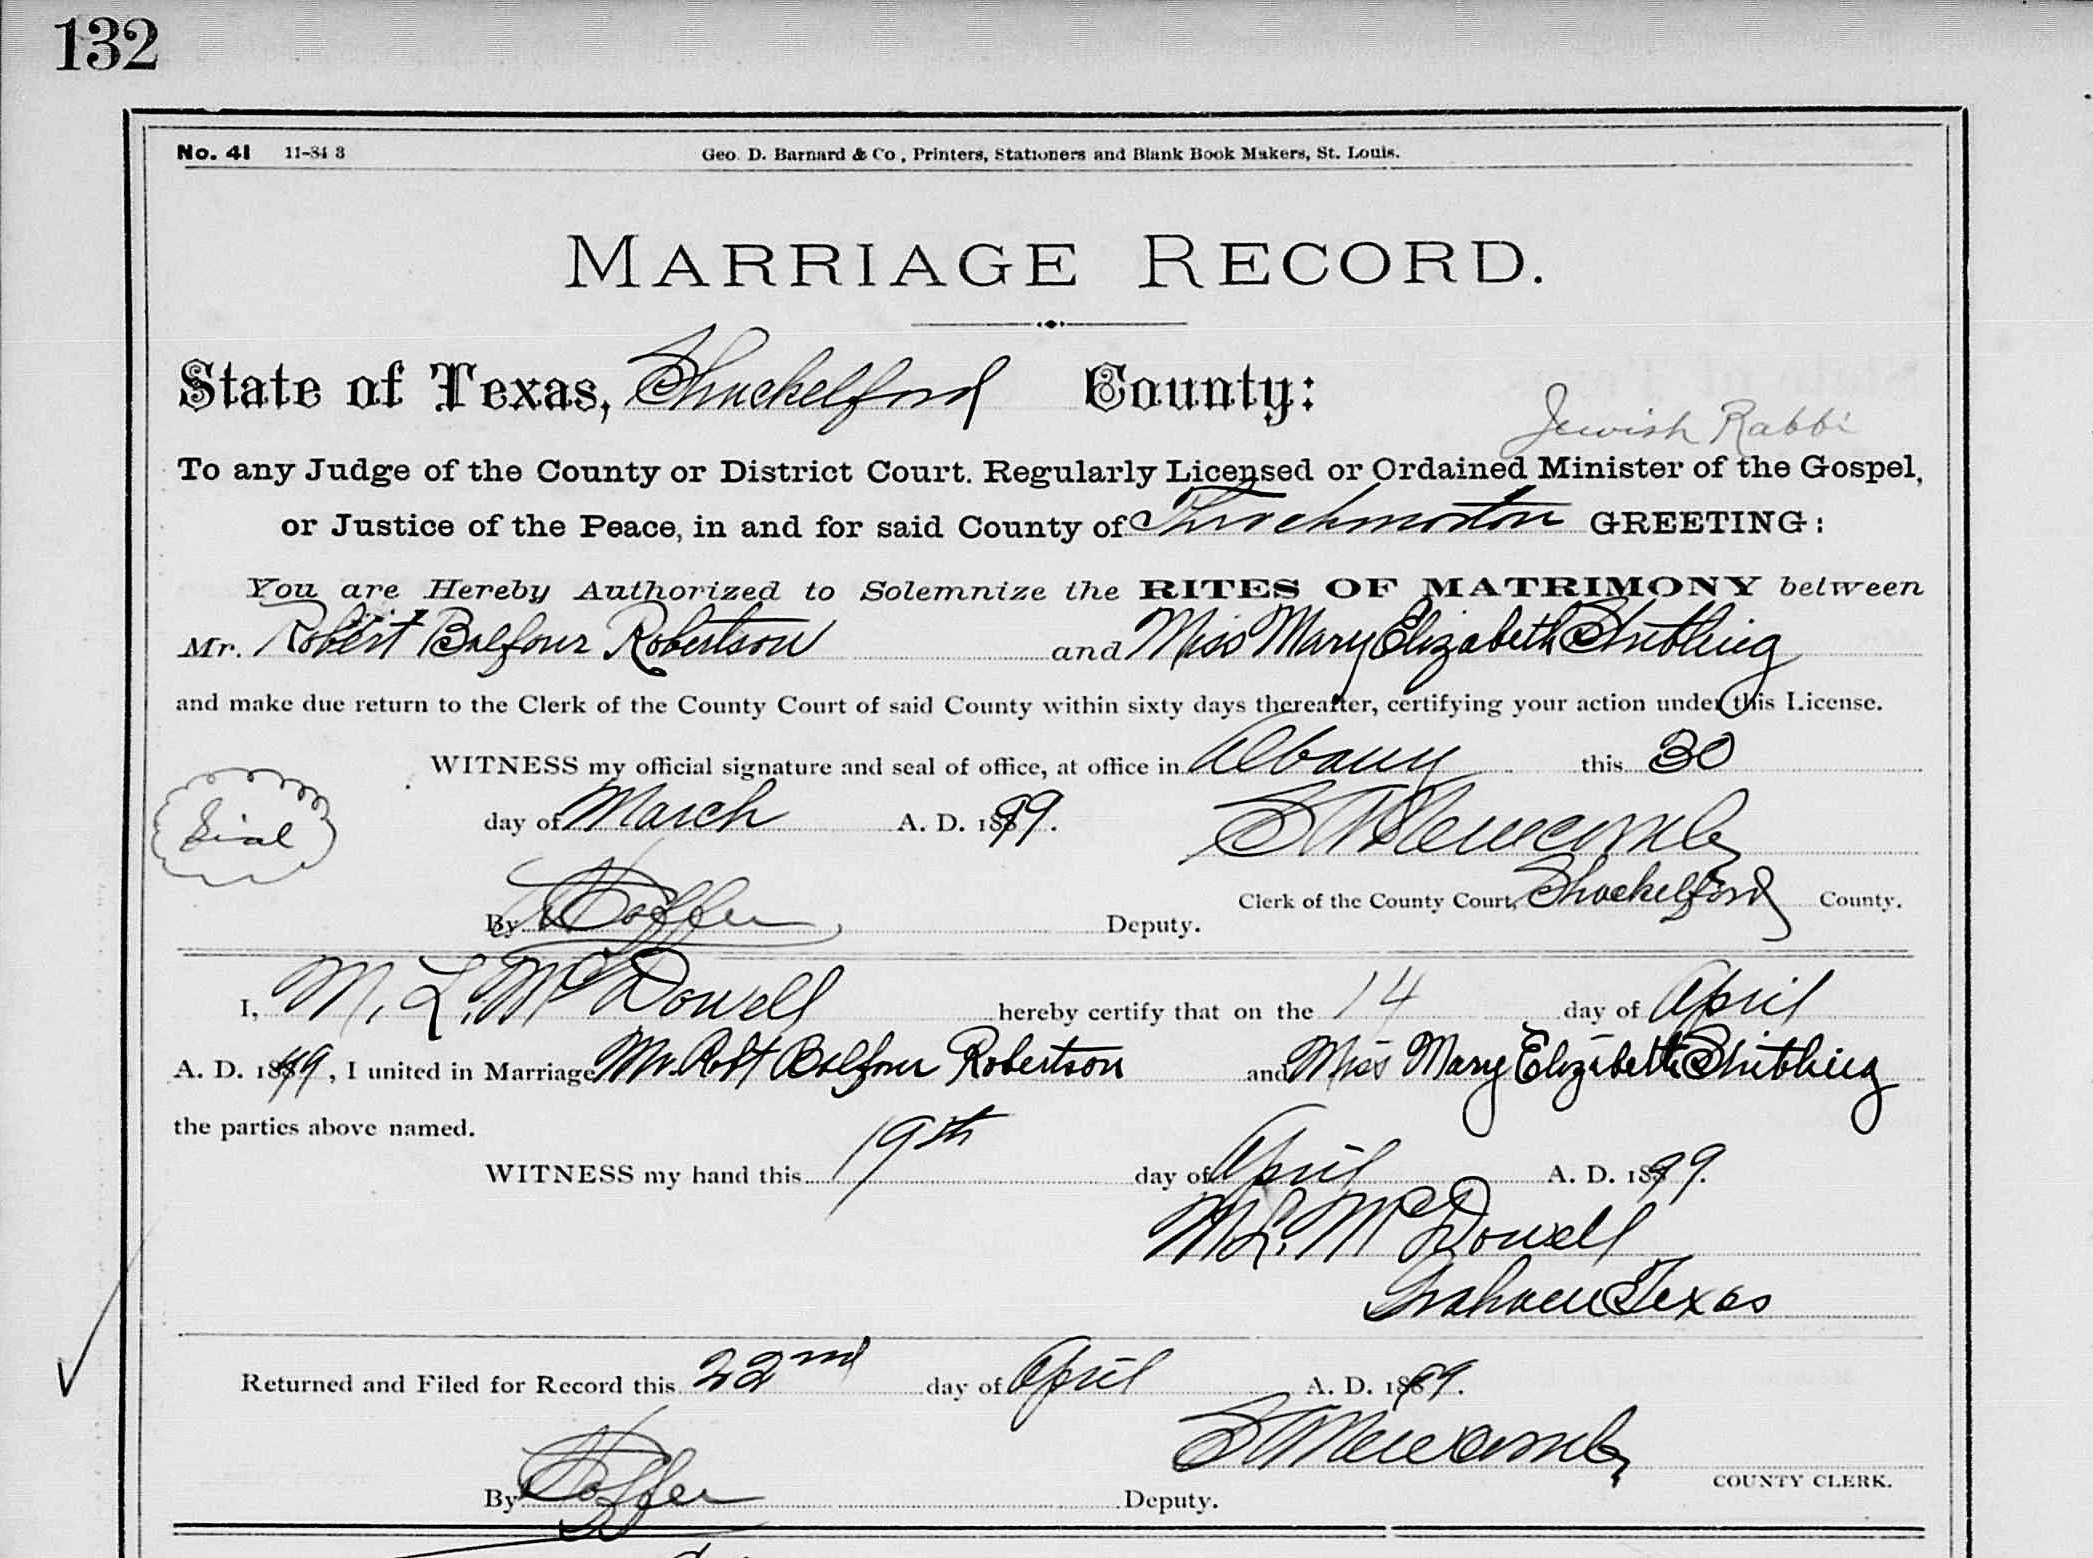 132
No. 41 11-84 3 Geo. D. Barnard & Co., Printers, Stationers and Blank Book Makers, St. Louis.
MARRIAGE RECORD.
State of Texas, Shackelford County:
Jewish Rabbi
To any Judge of the County or District Court. Regularly Licensed or Ordained Minister of the Gospel,
or Justice of the Peace, in and for said County of Throckmorton GREETING:
You are Hereby Authorized to Solemnize the RITES OF MATRIMONY between
Mr. Robert Balfour Robertson and Miss Mary Elizabeth Stribling
and make due return to the Clerk of the County Court of said County within sixty days thereafter, certifying your action under this License.
WITNESS my official signature and seal of office, at office in Albany this 30
Seal
day of March A. D. 1899.
Newcomb
Clerk of the County Court, Shackelford County.
By Deputy.
I, M. L. McDowell hereby certify that on the 14 day of April
A. D. 1899, I united in Marriage Mr. Robt Balfour Robertson and Miss Mary Elizabeth Stribling
the parties above named.
WITNESS my hand this 19th day of April A. D. 1899.
M. L. McDowell
Graham Texas
Returned and Filed for Record this 22nd day of April A. D. 1899.
Newcomb
COUNTY CLERK.
By Deputy.